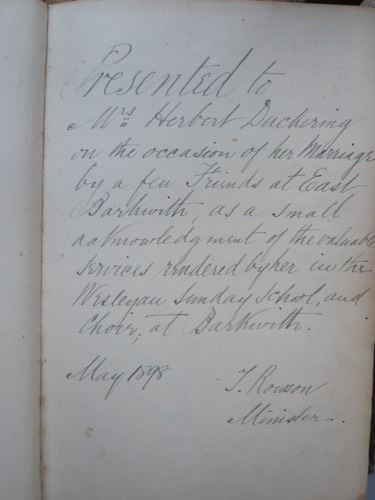 Presented to
Mrs Herbert Duckering
on the occasion of her Marriage
by a few Friends at East
Barkwith, as a small
acknowledgment of the valuable
services rendered by her in the
Wesleyan Sunday School, and
Choir, at Barkwith.
May 1898
T. Rowson
Minister.